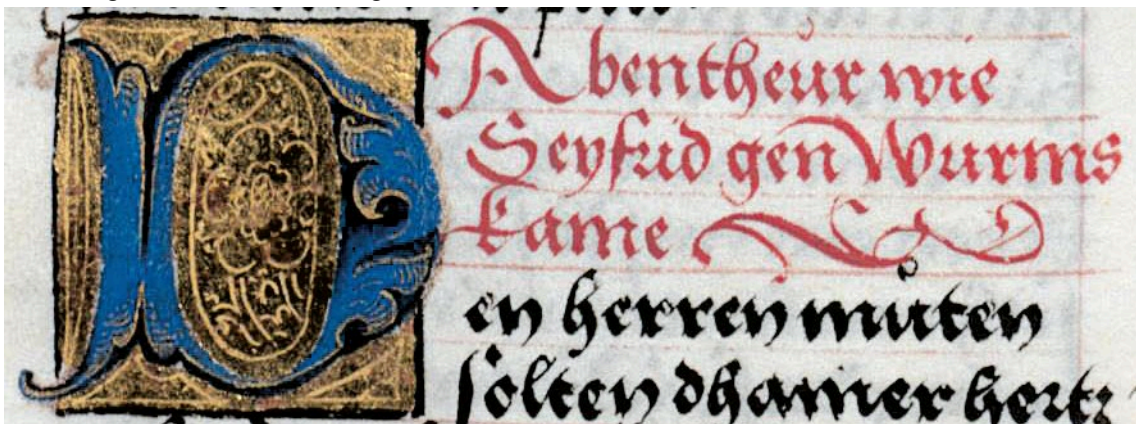 Abentheur wie
Seyfrid gen Wurms
kame
Den herren muͦten
solten dhainer hertz